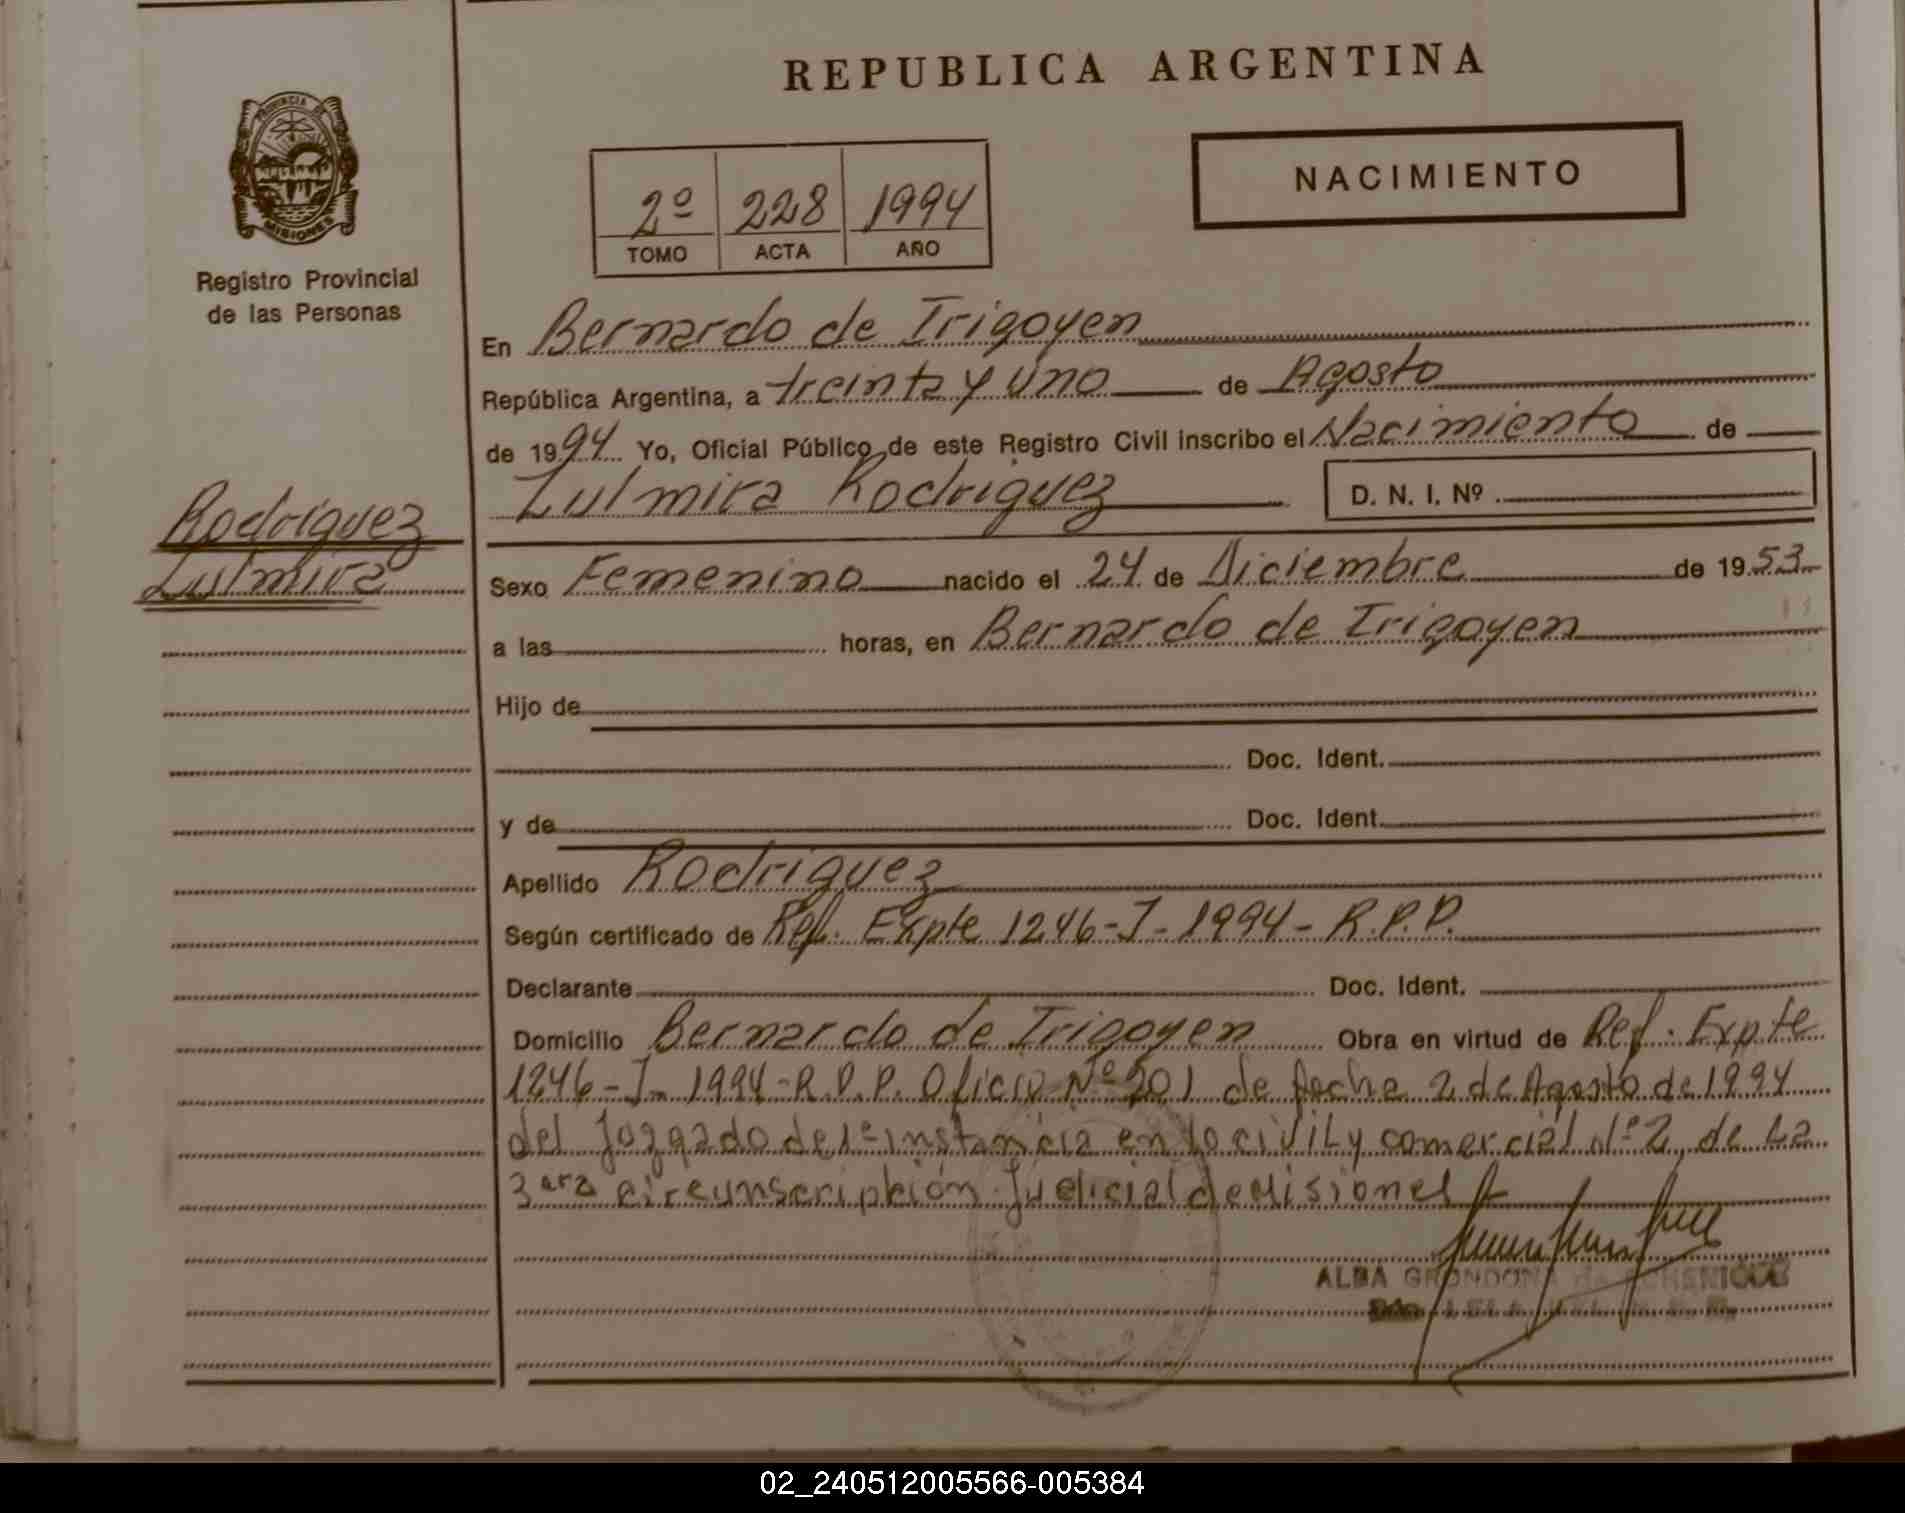 REPUBLICA ARGENTINA
PROVINCIA DE
MISIONES
Registro Provincial
de las Personas
2º 228 1994
TOMO ACTA AÑO
NACIMIENTO
En Bernardo de Irigoyen
República Argentina, a treinta y uno de Agosto
de 1994 Yo, Oficial Público de este Registro Civil inscribo el Nacimiento de
Zulmira Rodriguez D. N. I. Nº
Rodriguez
Zulmira
Sexo Femenino nacido el 24 de Diciembre de 1953
a las horas, en Bernardo de Irigoyen
Hijo de
Doc. Ident.
y de Doc. Ident.
Apellido Rodriguez
Según certificado de Ref. Expte 1246-I-1994-R.P.P.
Declarante Doc. Ident.
Domicilio Bernardo de Irigoyen Obra en virtud de Ref. Expte
1246-I-1994-R.P.P. Oficio Nº 201 de fecha 2 de Agosto de 1994
del Juzgado de 1º instancia en lo civil y comercial Nº 2 de La
3era circunscripción Judicial de Misiones
ALBA GRONDONA de
02_240512005566-005384